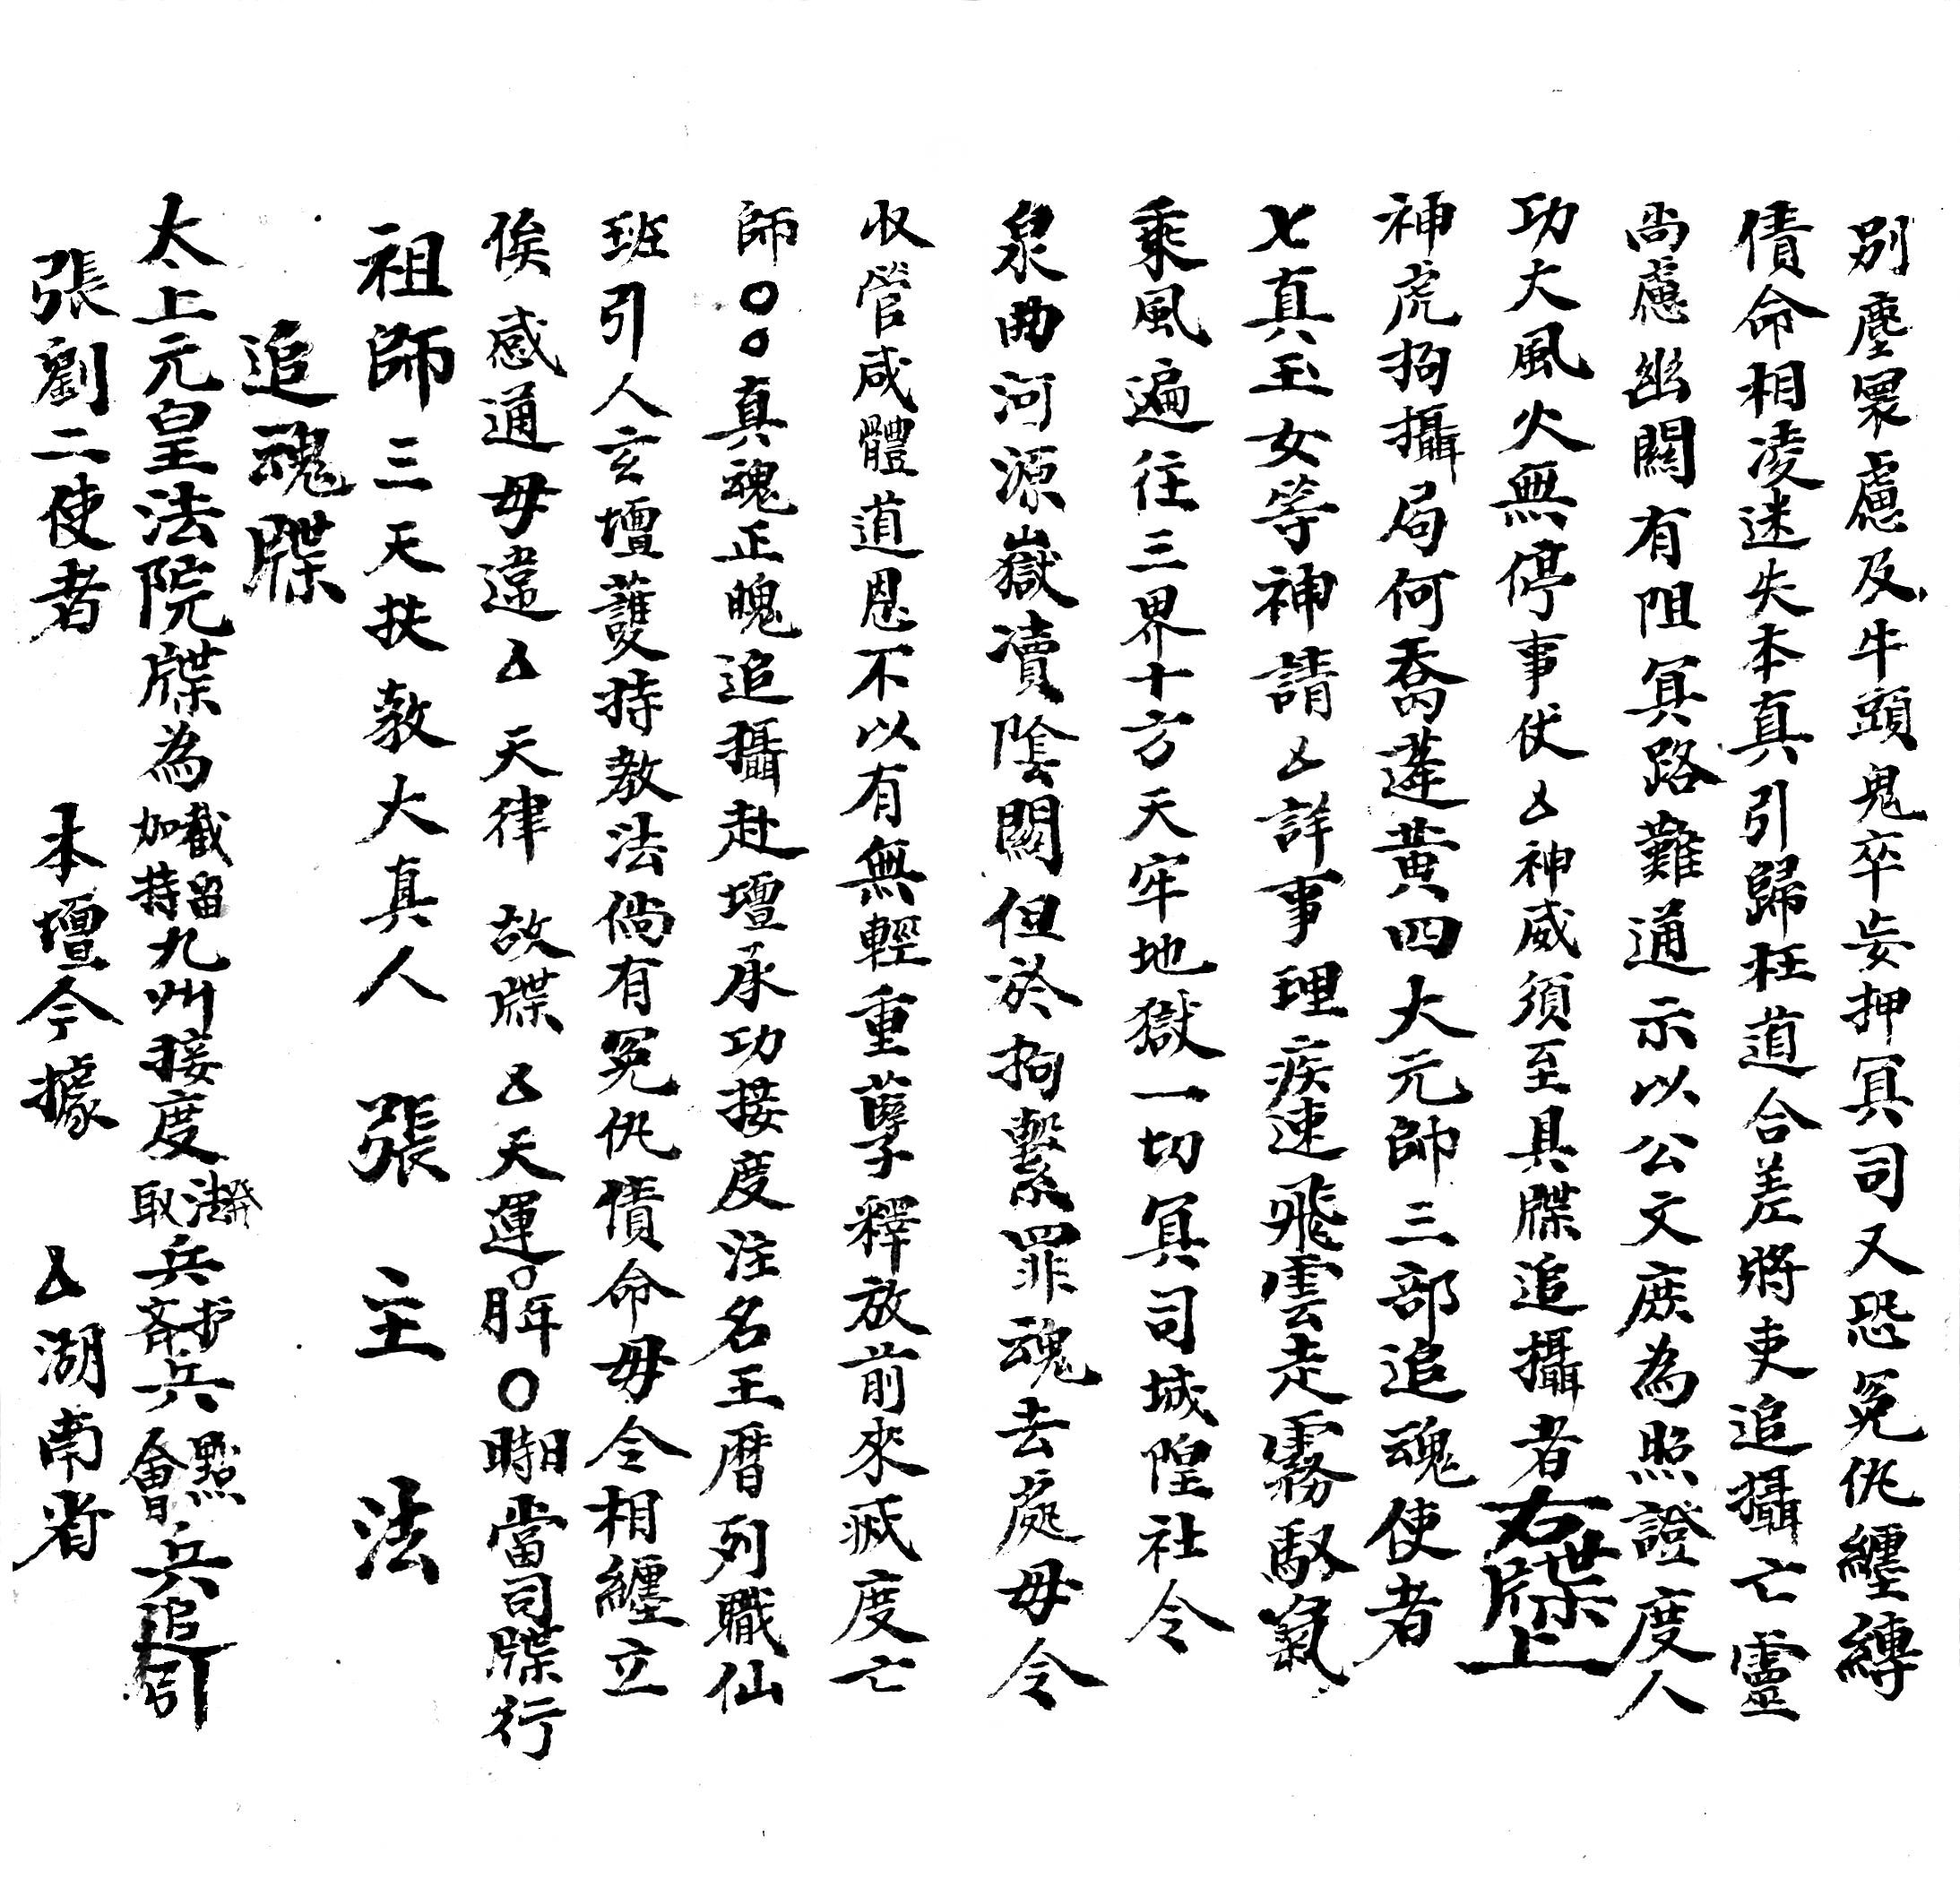 別塵寰慮及牛頭鬼卒妄押冥司又恐冤仇纏縛
債命相凌迷失本真引歸枉道合差將吏追攝亡靈
尚慮幽關有阻冥路難通示以公文庶為照證度人
功大風火無停事伏厶神威須至具牒追攝者右牒上
神虎拘攝局何喬蓬黃四大元帥三部追魂使者
七真玉女等神請厶詳事理疾速飛雲走霧馭氣
乘風遍往三界十方天牢地獄一切冥司城隍社令
泉曲河源嶽瀆陰關但於拘繫罪魂去處毋令
收管咸體道恩不以有無輕重孽釋放前來祗度亡
師〇〇真魂正魄追攝赴壇承功接度注名王曆列職仙
班引人玄壇護持教法倘有冤仇債命毋令相纏立
俟感通毋違厶天律 故牒 厶天運〇年月〇朝日時當司牒行
祖師三天扶教大真人 張 主 法
追魂牒
太上元皇法院牒為加持截留九州接度取法發兵斎护兵會點兵追引
張劉二使者 本壇今據 厶湖南省